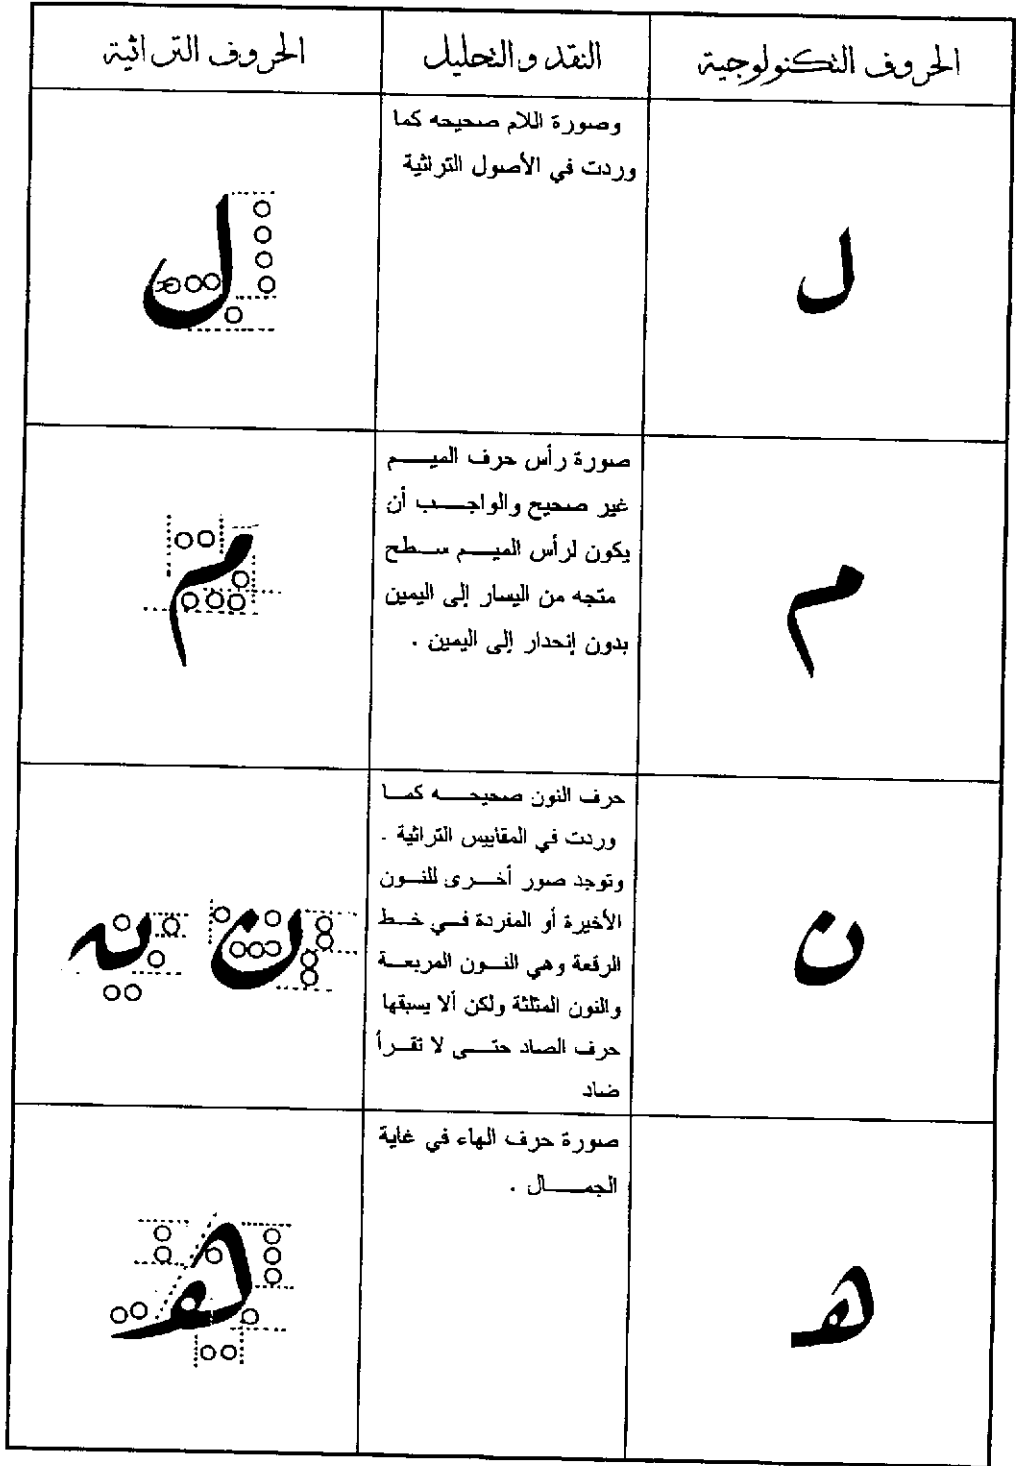 الحروف التكنولوجية
النقد والتحليل
الحروف التراثية
ل
وصورة اللام صحيحه كما
وردت في الأصول التراثية
ل
م
صورة رأس حرف الميـــم
غير صحيح والواجـــب أن
يكون لرأس الميـــم ســطح
متجه من اليسار إلى اليمين
بدون إنحدار إلى اليمين .
م
ن
حرف النون صحيحـــه كمــا
وردت في المقاييس التراثية .
وتوجد صور أخــرى للنــون
الأخيرة أو المفردة فــي خــط
الرقعة وهي النــون المربعــة
والنون المثلثة ولكن ألا يسبقها
حرف الصاد حتـــى لا تقــرأ
ضاد
ن
هـ
صورة حرف الهاء في غاية
الجمـــــال .
هـ